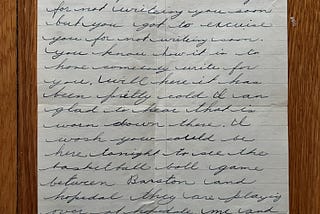 for not writing you soon
but you got to excuse
you for not writing soon.
you know how it is to
have somebody write for
you. Well here it has
been pretty cold I am
glad to hear that is
warm down there. I
wish you could be
here tonight to see the
basketball ball game
between Barston and
hopedal they are playing
over at hopedale me and